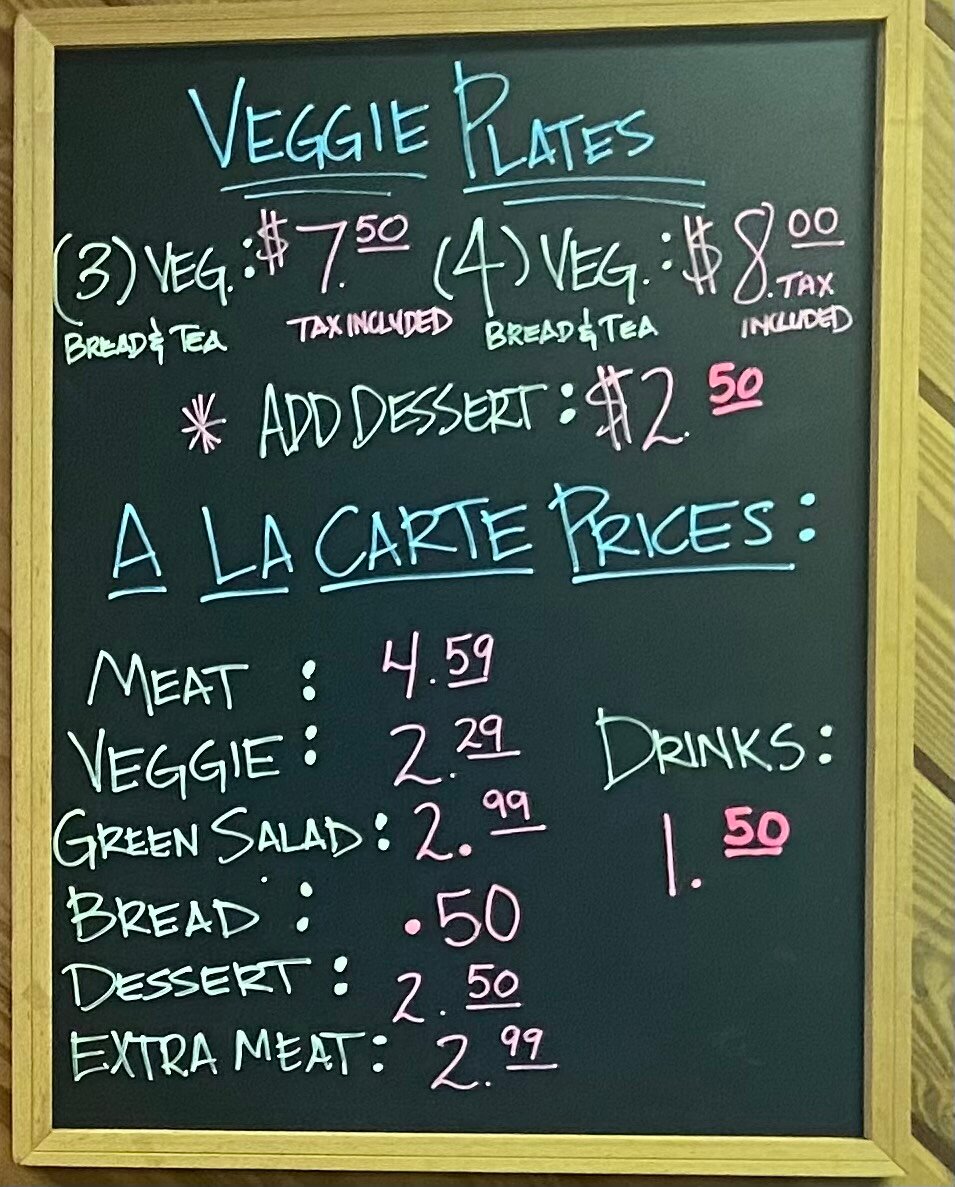 VEGGIE PLATES
(3) VEG.: $7.50 (4) VEG.: $8.00
BREAD & TEA TAX INCLUDED BREAD & TEA TAX INCLUDED
* ADD DESSERT: $2.50
A LA CARTE PRICES:
MEAT: 4.59
VEGGIE: 2.29
GREEN SALAD: 2.99
BREAD: .50
DESSERT: 2.50
EXTRA MEAT: 2.99
DRINKS:
1.50